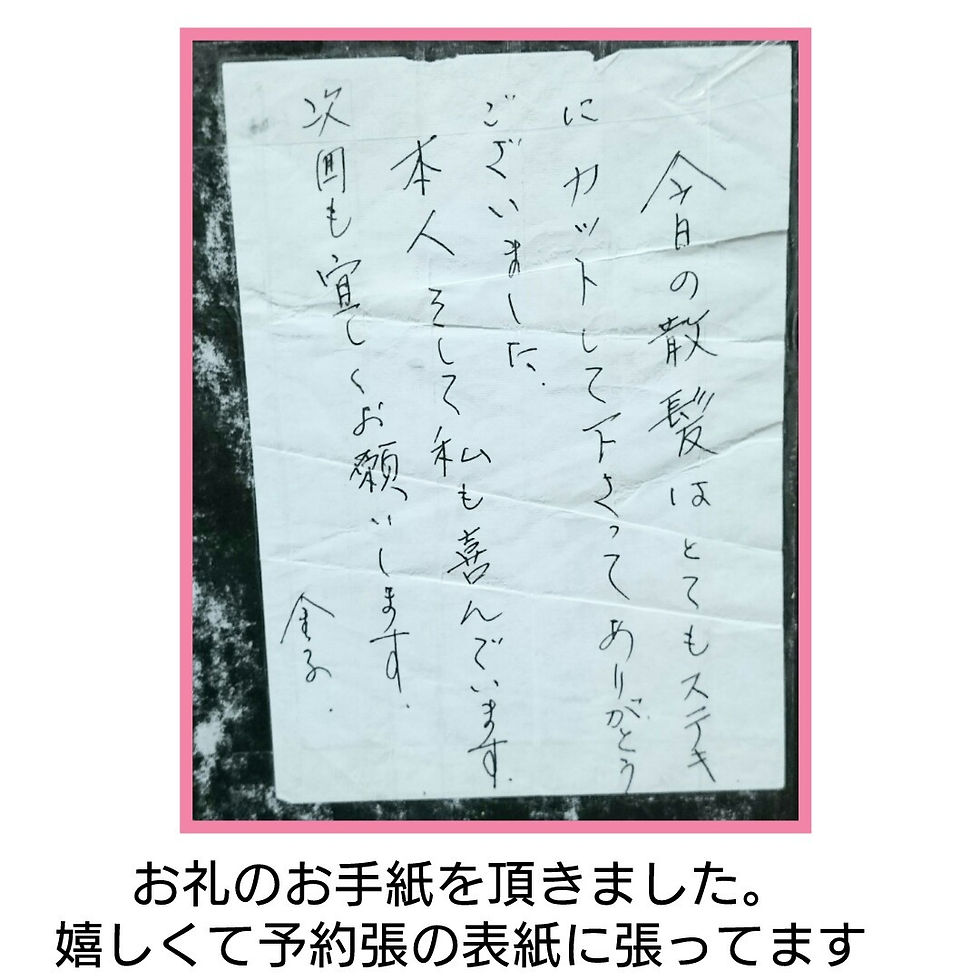 今日の散髪はとてもステキ
にカットして下さってありがとう
ございました.
本人そして私も喜んでいます.
次回も宜しくお願いします.
金子.
お礼のお手紙を頂きました。
嬉しくて予約張の表紙に張ってます